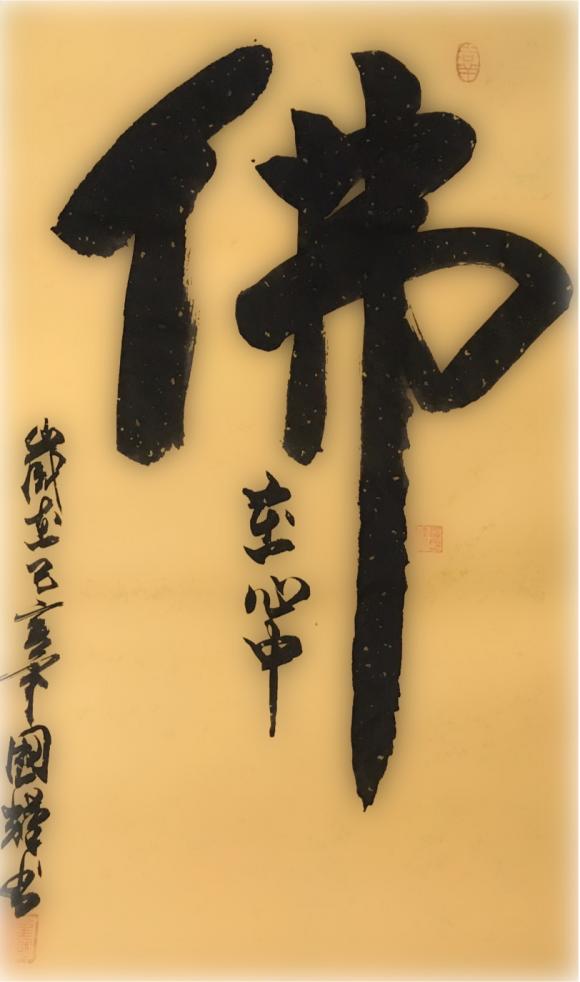 佛
在心中
歲在己亥年國耀书